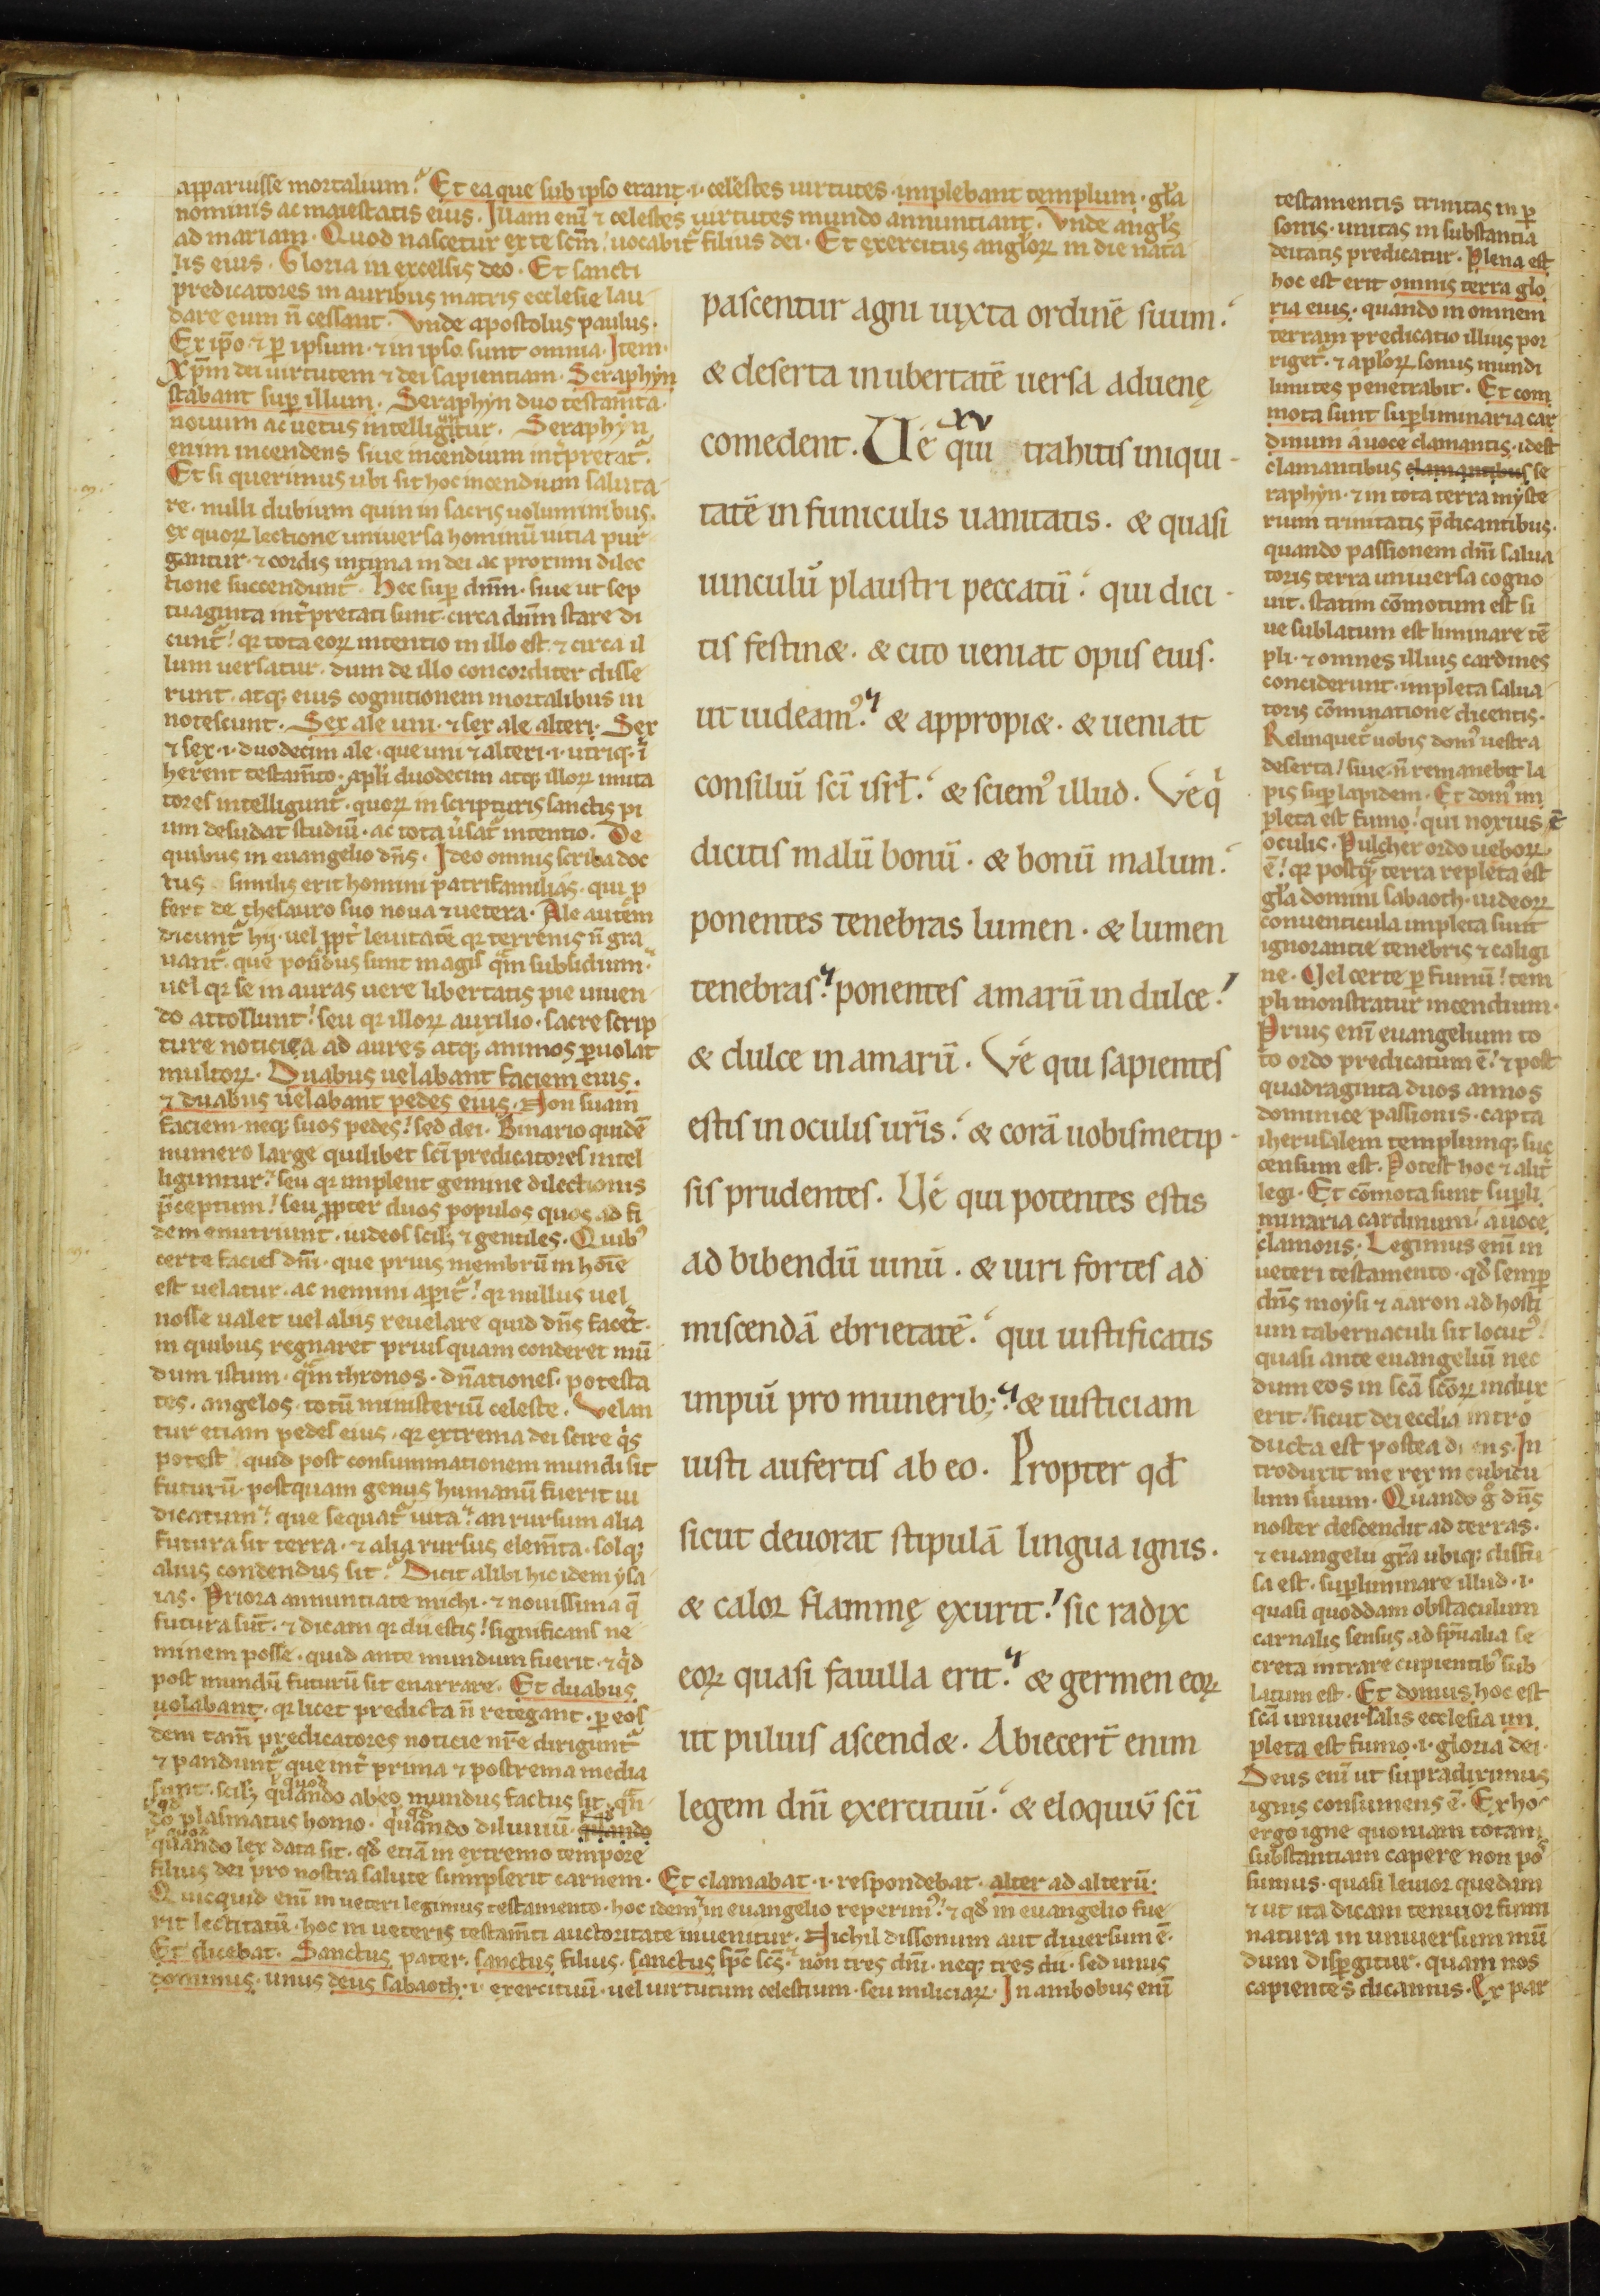 apparuisse mortalium. Et ea que sub ipso erant .i. celestes uirtutes. implebant templum. gła
nominis ac maiestatis eius. Illam enī ⁊ celestes uirtutes mundo annuntiant. Vnde angłs
ad mariam. Quod nascetur ex te scm̄ uocabit̃ filius dei. Et exercitus angloꝝ in die nata
lis eius. Gloria in excelsis deo. Et sancti
predicatores in auribus matris ecclesie lau
dare eum n̄ cessant. Vnde apostolus paulus.
Ex ip̄o ⁊ ꝑ ipsum. ⁊ in ipso sunt omnia. Item.
Xp̄m dei uirtutem ⁊ dei sapientiam. Seraphyn
stabant suꝑ illum. Seraphyn duo testam̄ta.
nouum ac uetus intelliguntur. Seraphyn
enim incendens siue incendium int̃pretat̃.
Et si querimus ubi sit hoc incendium saluta
re. nulli dubium quin in sacris uoluminibus.
ex quoꝝ lectione uniuersa hominū uitia pur
gantur. ⁊ cordis intima in dei ac proximi dilec
tione succendunt̃. Hec suꝑ dnm̄. siue ut sep
tuaginta int̃pretati sunt. circa dnm̄ stare di
cunt̃! qr tota eoꝝ intentio in illo est. ⁊ circa il
lum uersatur. dum de illo concorditer disse
runt. atqꝫ eius cognitionem mortalibus in
notescunt. Sex ale uni. ⁊ sex ale alteri. Sex
⁊ sex .i. duodecim ale. que uni ⁊ alteri .i. utriqꝫ ī
herent testam̄to. apłi duodecim atqꝫ illoꝝ imita
tores intelligunt̃. quoꝝ in scripturis sanctis pi
um desudat studiū. ac tota ũsat̃ intentio. De
quibus in euangelio dn̄s. Ideo omnis scriba doc
tus similis erit homini patrifamilias. qui ꝓ
fert de thesauro suo noua ⁊ uetera. Ale autem
dicunt̃ hij. uel ꝓpt̃ leuitatē qr terrenis n̄ gra
uant̃. que pondus sunt magis qm̃ subsidium.
uel qr se in auras uere libertatis pie uiuen
do attollunt! seu qr illoꝝ auxilio. sacre scrip
ture noticiea ad aures atqꝫ animos ꝑuolat
multoꝝ. Duabus uelabant faciem eius.
⁊ duabus uelabant pedes eius. Non suam
faciem. neqꝫ suos pedes! sed dei. Binario quidē
numero large quilibet scī predicatores intel
liguntur. seu qr implent gemine dilectionis
p̄ceptum! seu ꝓpter duos populos quos ad fi
dem enutriunt. iudeos scilꝫ ⁊ gentiles. Quibꝰ
certe facies dnī. que prius membrū in hoīe
est uelatur. ac nemini aꝑit̃! qr nullus uel
nosse ualet uel aliis reuelare quid dn̄s facer̃.
in quibus regnaret prius quam conderet mū
dum istum. qm̃ thronos. dn̄ationes. potesta
tes. angelos. totū ministeriū celeste. Velan
tur etiam pedes eius. qr extrema dei scire qis
potest quid post consummationem mundi sit
futurū. postquam genus humanū fuerit iu
dicatum. que sequat̃ uita. an rursum alia
futura sit terra. ⁊ alia rursus elem̄ta. solqꝫ
alius condendus sit. Dicit alibi hic idem ysa
ias. Priora annuntiate michi. ⁊ nouissima q̄
futura sūt. ⁊ dicam qr dii estis! significans ne
minem posse. quid ante mundum fuerit. ⁊ qid
post mundū futurū sit enarrare. Et duabus
uolabant. qr licet predicta n̄ retegant. ꝑ eos
dem tam̄ predicatores noticie nr̄e dirigunt̃
⁊ pandunt̃ que int̃ prima ⁊ postrema media
sunt. scilꝫ quando abeo mundus factus sit. qn̄
do plasmatus homo. quando diluuiū. quando
quando lex data sit. qđ etiā in extremo tempore
filius dei pro nostra salute sumpserit carnem. Et clamabat .i. respondebat. alter ad alterū.
Quicquid enī in ueteri legimus testamento. hoc idem in euangelio reperimꝰ. ⁊ qđ in euangelio fue
rit lectitatū. hoc in ueteris testam̄ti auctoritate inuenitur. Nichil dissonum aut diuersum ē.
Et dicebat. Sanctus pater. sanctus filius. sanctus spc̄ scs̄. non tres dnī. neqꝫ tres dii. sed unus
dominus. unus deus sabaoth .i. exercituū. uel uirtutum celestium. seu miliciaꝝ. In ambobus enī
pascentur agni iuxta ordinē suum.
& deserta in ubertatē uersa aduenę
comedent. Ue qui trahitis iniqui-
xv
tatē in funiculis uanitatis. & quasi
uinculū plaustri peccatū. qui dici-
tis festinæ. & cito ueniat opus eius.
ut uideamꝰ. & appropiæ. & ueniat
consiliū scī isrł. & sciemꝰ illud. Ve q̍
dicitis malū bonū. & bonū malum.
ponentes tenebras lumen. & lumen
tenebras. ponentes amarū in dulce!
& dulce in amarū. Ve qui sapientes
estis in oculis urīs. & corā uobismetip-
sis prudentes. Ue qui potentes estis
ad bibendū uinū. & uiri fortes ad
miscendā ebrietatē. qui iustificatis
impiū pro munerib;. & iusticiam
iusti aufertis ab eo. Propter qđ
sicut deuorat stipulā lingua ignis.
& calor flammę exurit! sic radix
eoꝝ quasi fauilla erit. & germen eoꝝ
ut puluis ascendæ. Abiecert̄ enim
legem dnī exercituū. & eloquiū scī
testamentis trinitas in ꝑ
sonis. unitas in substantia
deitatis predicatur. Plena est
hoc est erit omnis terra glo
ria eius. quando in omnem
terram predicatio illius por
riget̃. ⁊ apłoꝝ sonus mundi
limites penetrabit. Et com
mota sunt suꝑliminaria car
dinum a uoce clamantis. idest
clamantibus clamantibus se
raphyn. ⁊ in tota terra myste
rium trinitatis p̄dicantibus.
quando passionem dnī salua
toris terra uniuersa cogno
uit. statim cōmotum est si
ue sublatum est liminare tē
pli. ⁊ omnes illius cardines
conciderunt. impleta salua
toris cōminatione dicentis.
Relinquet̃ uobis domꝰ uestra
deserta! siue. n̄ remanebit la
pis suꝑ lapidem. Et domꝰ im
pleta est fumo! qui noxius ē
oculis. Pulcher ordo uerboꝝ
ē! qr postq̄ terra repleta est
gła domini sabaoth. iudeoꝝ
conuenticula impleta sunt
ignorantie tenebris ⁊ caligi
ne. Uel certe ꝑ fumū! tem
pli monstratur incendium.
Prius enī euangelium to
to ordo predicatum ē! ⁊ post
quadraginta duos annos
dominice passionis. capta
iherusalem templumqꝫ suc
censum est. Potest hoc ⁊ alit̃
legi. Et cōmota sunt suꝑli
minaria cardinum! a uoce
clamoris. Legimus enī in
ueteri testamento. qđ semꝑ
dn̄s moysi ⁊ aaron ad hosti
um tabernaculi sit locutꝰ!
quasi ante euangeliū nec
dum eos in scā scōꝝ indux
erit! sicut dei ecclīa intro
ducta est postea dicens. In
troduxit me rex in cubicu
lum suum. Quando g̊ dn̄s
noster descendit ad terras.
⁊ euangelii grā ubiqꝫ diffu
sa est. suꝑliminare illud .i.
quasi quoddam obstaculum
carnalis sensus ad spūalia se
creta intrare cupientibꝰ sub
latum est. Et domus hoc est
scā uniuersalis ecclesia im
pleta est fumo .i. gloria dei.
Deus enī ut supradiximus
ignis consumens ē. Ex hoc
ergo igne quoniam totam
substantiam capere non pos
sumus. quasi leuior quedam
⁊ ut ita dicam tenuior fumi
natura in uniuersum mū
dum disꝑgitur. quam nos
capientes dicamus. Ex par